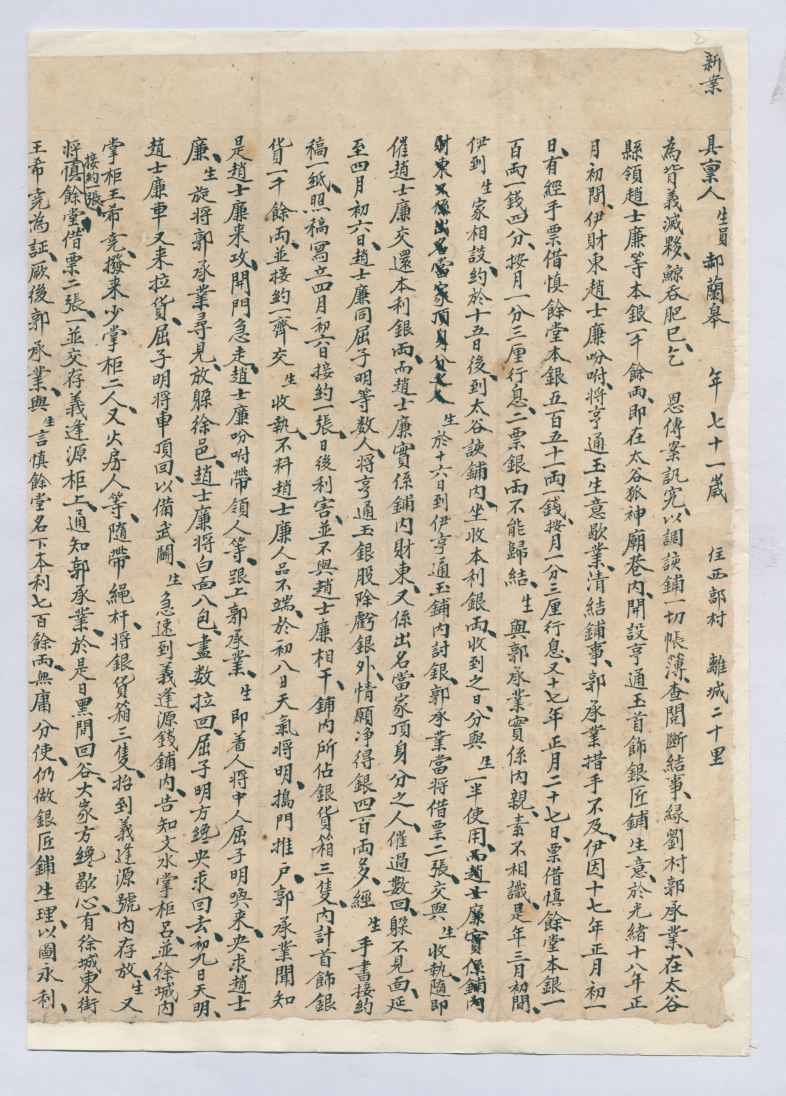 新業
具稟人生員郝蘭皋 年七十一歲 住西郜村 離城二十里
為背義滅夥、鯨吞肥已、乞 恩傳案訊究、以調該鋪一切帳簿、查閱斷結事、緣劉村郭承業、在太谷
縣領趙士廉等本銀一千餘兩、即在太谷狐神廟巷內、開設亨通玉首飾銀匠鋪生意、於光緒十八年正
月初間、伊財東趙士廉吩咐、將亨通玉生意歇業、清結鋪事、郭承業措手不及、伊因十七年正月初一
日、有經手票借慎餘堂本銀五百五十一兩一錢、按月一分三厘行息、又十七年正月二十七日、票借慎餘堂本銀一
百兩一錢四分、按月一分三厘行息、二票銀兩不能歸結、生與郭承業實係內親、素不相識、是年三月初間、
伊到生家相設、約於十五日後、到太谷該鋪內、坐收本利銀兩、收到之日、分與生一半使用、而趙士廉實係鋪內
財東又係出名當家頂身分之人生於十六日到伊亨通玉鋪內討銀、郭承業當將借票二張、交與生收執、隨即
催趙士廉交還本利銀兩、而趙士廉實係鋪內財東、又係出名當家頂身分之人、催過數回、躲不見面、延
至四月初六日、趙士廉同屈子明等数人、將亨通玉銀股除虧銀外、情願净得銀四百兩多、經生手書接約
稿一紙、照稿寫立四月初六日接約一張、日後利害並不與趙士廉相干、鋪內所佔銀貨箱三隻、內計首飾銀
貨一千餘兩、並接約一齊交生收執、不料趙士廉人品不端、於初八日天氣將明、搗門推户、郭承業聞知
是趙士廉来攻、開門急走、趙士廉吩咐帶領人等、跟上郭承業、生即着人將中人屈子明喚来、央求趙士
廉、生旋將郭承業尋見、放躲徐邑、趙士廉將白面八包、盡数拉回、屈子明方纔央求回去、初九日天明、
趙士廉車又来拉貨、屈子明將車頂回、以備武鬭、生急速到義逢源錢鋪內、告知文水掌柜名並徐城內
掌柜王希堯、撥来少掌柜二人、又火房人等、隨帶繩杆、將銀貨箱三隻、抬到義逢源號內存放、生又
將慎餘堂借票二張、接約一張、一並交存義逢源柜上、通知郭承業、於是日黑間回谷、大家方纔歇心、有徐城東街
王希堯為証、厥後郭承業、與生言慎餘堂名下本利七百餘兩、無庸分使、仍做銀匠鋪生理、以圖永利、